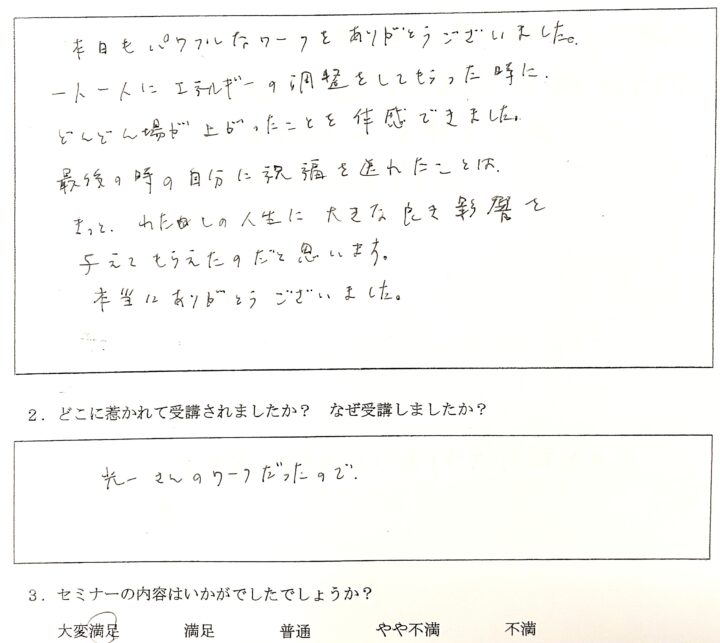 本日もパワフルなワークをありがとうございました。
一人一人にエネルギーの調整をしてもらった時に、
どんどん場が上がったことを体感できました。
最後の時の自分に祝福を送れたことは、
きっと、わたしの人生に大きな良き影響を
与えてもらえたのだと思います。
本当にありがとうございました。
2．どこに惹かれて受講されましたか？　なぜ受講しましたか？
光一さんのワークだったので、
3．セミナーの内容はいかがでしたでしょうか？
大変満足　満足　普通　やや不満　不満